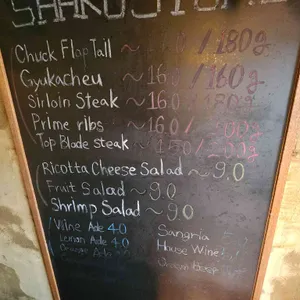 Chuck Flap Tail ~ /180g
Gyukacheu ~16.0/160g
Sirloin Steak ~16.0/180g
Prime ribs ~16.0/
Top Blade steak ~
Ricotta Cheese Salad ~9.0
Fruit Salad ~9.0
Shrimp Salad ~9.0
Wine Ade 4.0
Lemon Ade 4.0
Sangria
House Wine